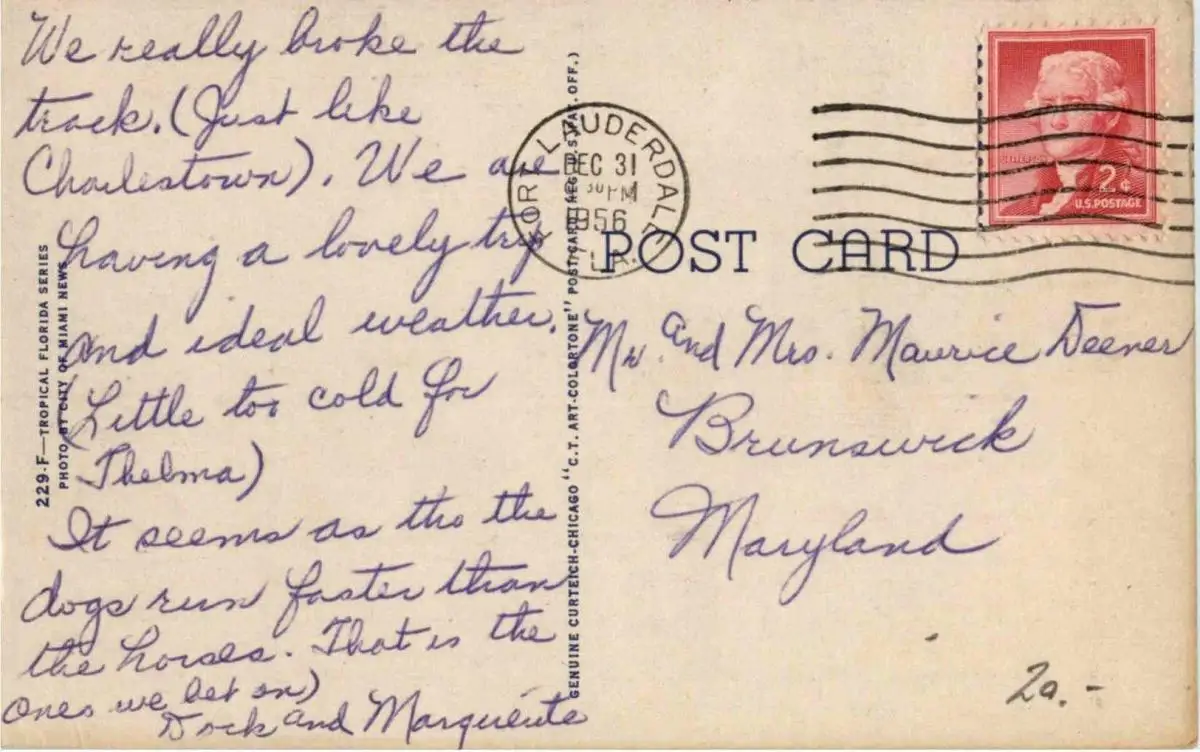 We really broke the
track. (Just like
Charlestown). We are
having a lovely trip
and ideal weather.
(Little too cold for
Thelma)
It seems as tho the
dogs run faster than
the horses. That is the
ones we bet on)
Dock and Marguerite
229-F—TROPICAL FLORIDA SERIES
PHOTO BY CITY OF MIAMI NEWS
GENUINE CURTEICH-CHICAGO "C.T. ART-COLORTONE" POST CARD (REG. U.S. PAT. OFF.)
FORT LAUDERDALE
DEC 31
30 PM
1956
FLA.
JEFFERSON
2¢
U.S. POSTAGE
POST CARD
Mr. and Mrs. Maurice Deener
Brunswick
Maryland
20.-